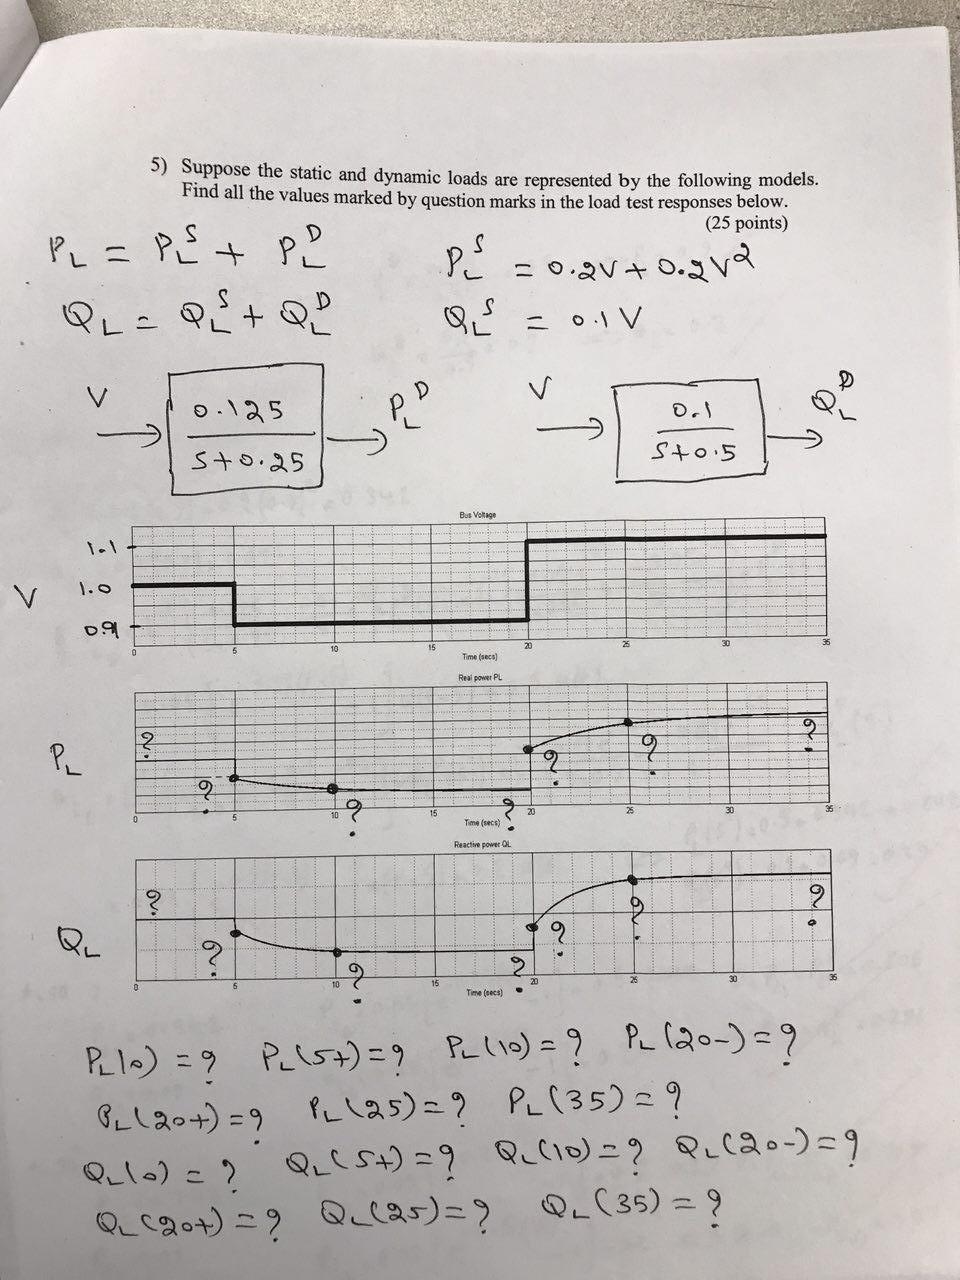 5) Suppose the static and dynamic loads are represented by the following models.
Find all the values marked by question marks in the load test responses below.
(25 points)
P_L = P_L^S + P_L^D
P_L^S = 0.2V + 0.2V^2
Q_L = Q_L^S + Q_L^D
Q_L^S = 0.1V
V
0.125
S+0.25
P_L^D
V
0.1
S+0.5
Q_L^D
Bus Voltage
V
1.1
1.0
0.9
0 5 10 15 20 25 30 35
Time (secs)
Real power PL
P_L
? ? ? ? ? ? ?
0 5 10 15 20 25 30 35
Time (secs)
Reactive power QL
Q_L
? ? ? ? ? ? ?
0 5 10 15 20 25 30 35
Time (secs)
P_L(0) = ? P_L(5+) = ? P_L(10) = ? P_L(20-) = ?
P_L(20+) = ? P_L(25) = ? P_L(35) = ?
Q_L(0) = ? Q_L(5+) = ? Q_L(10) = ? Q_L(20-) = ?
Q_L(20+) = ? Q_L(25) = ? Q_L(35) = ?